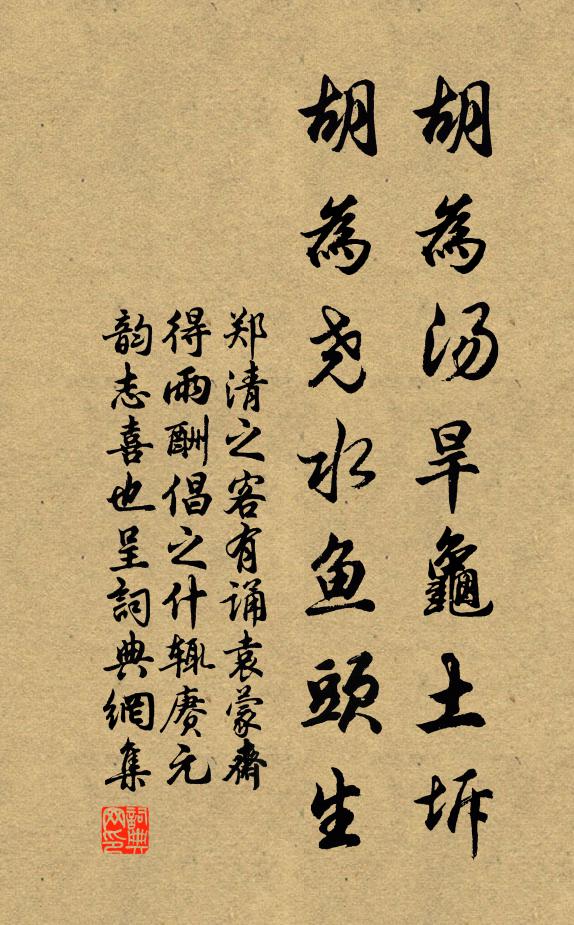 胡為汤旱龜土坼
胡為尧水鱼頭生
郑清之客有诵袁蒙齋
得雨酬倡之什辄赓元
韵志喜也呈詞典網集
詞典网印